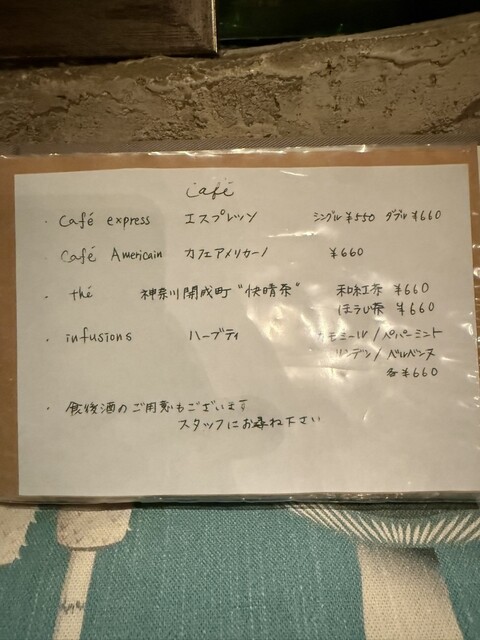 Café
・Café express エスプレッソ シングル ¥550 ダブル ¥660
・Café Americain カフェアメリカーノ ¥660
・thé 神奈川開成町"快晴茶" 和紅茶 ¥660
ほうじ茶 ¥660
・infusions ハーブティ カモミール/ペパーミント
リンデン/ベルベンヌ
各¥660
・食後酒のご用意もございます
スタッフにお尋ね下さい